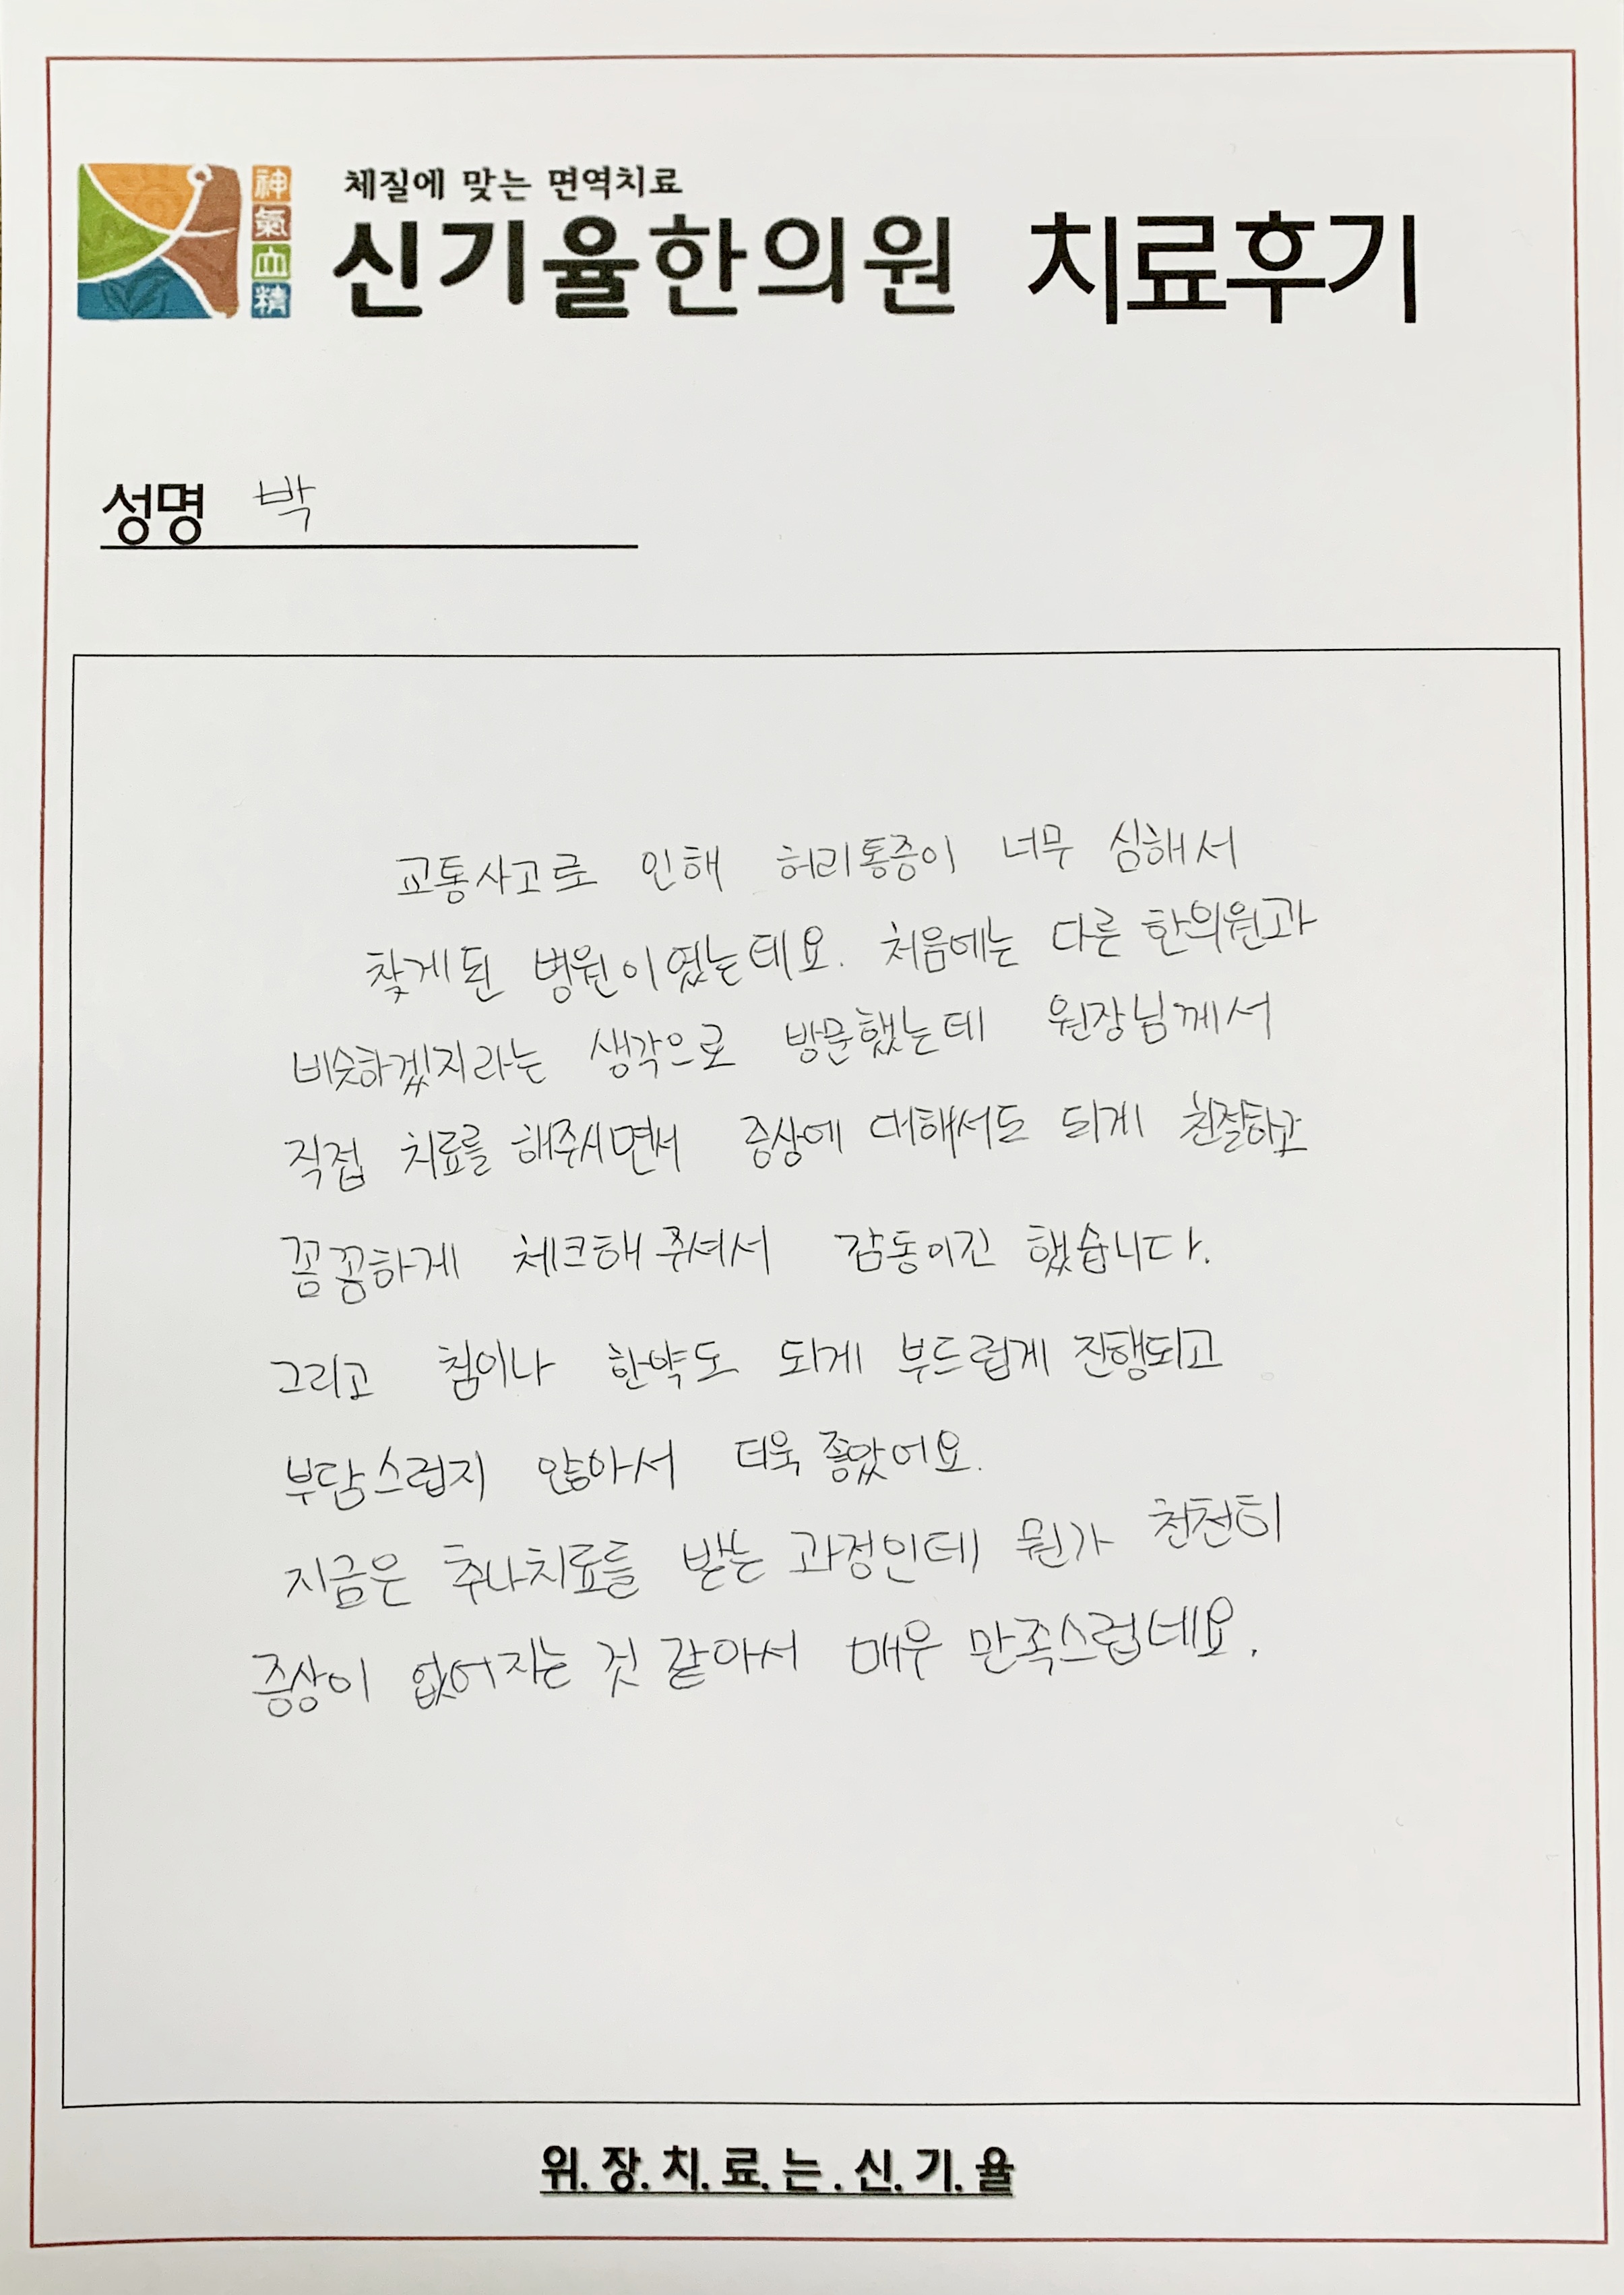 체질에 맞는 면역치료
神氣血精
신기율한의원 치료후기
성명 박
교통사고로 인해 허리통증이 너무 심해서
찾게된 병원이였는데요. 처음에는 다른 한의원과
비슷하겠지라는 생각으로 방문했는데 원장님께서
직접 치료를 해주시면서 증상에 대해서도 되게 친절하고
꼼꼼하게 체크해주셔서 감동이긴 했습니다.
그리고 침이나 한약도 되게 부드럽게 진행되고
부담스럽지 않아서 더욱 좋았어요.
지금은 추나치료를 받는 과정인데 뭔가 천천히
증상이 없어지는 것 같아서 매우 만족스럽네요.
위.장.치.료.는.신.기.율